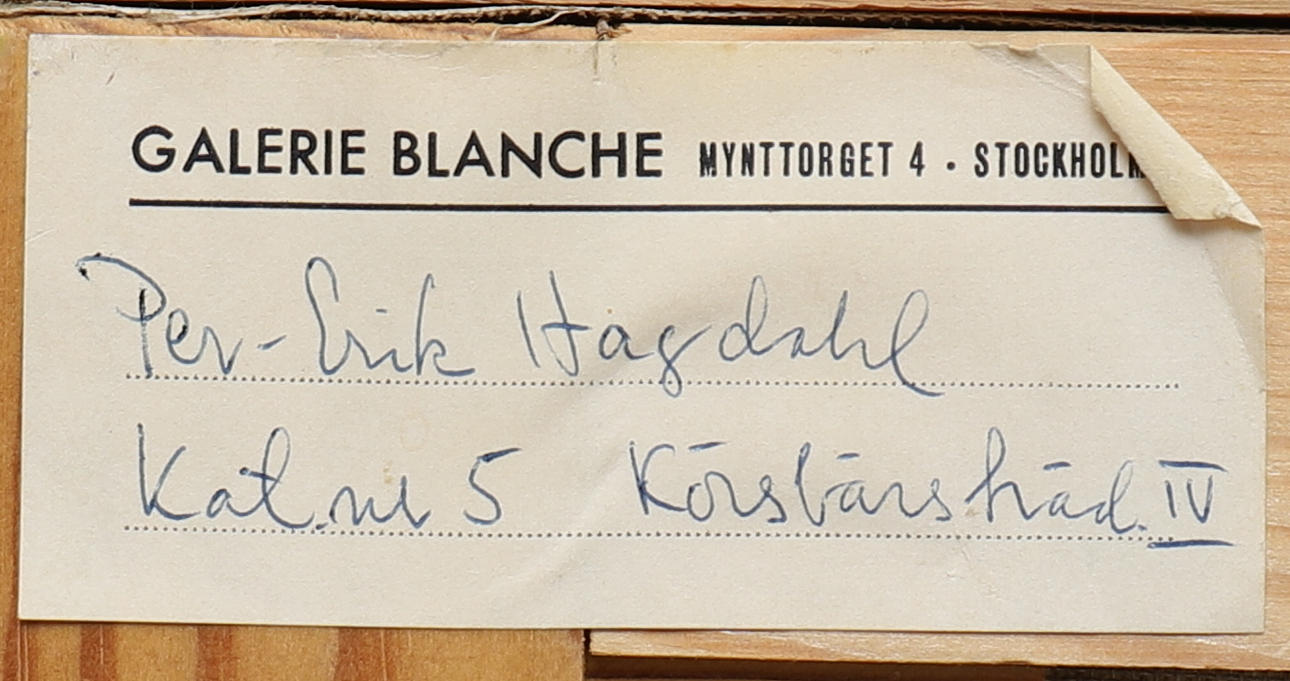 GALERIE BLANCHE MYNTTORGET 4 · STOCKHOLM
Per-Erik Hagdahl
Kat.nr 5 Körsbärsträd. IV